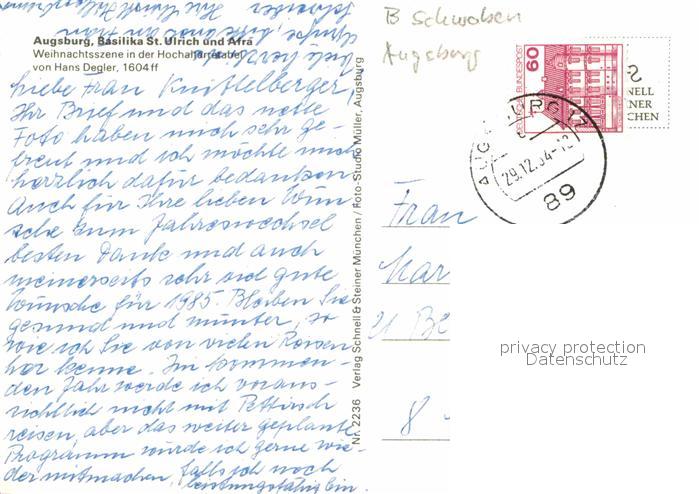 Augsburg, Basilika St. Ulrich und Afra
Weihnachtsszene in der Hochaltartafel
von Hans Degler, 1604 ff
Liebe Frau
Ihr Brief und das nette
Foto haben mich sehr ge-
freut und ich möchte mich
herzlich dafür bedanken
Auch für Ihre lieben Wün
sche zum Jahreswechsel
besten Dank und auch
meinerseits sehr viel gute
Wünsche für 1985. Bleiben Sie
gesund und munter, so
wie ich Sie von vielen Reisen
her kenne. Im kommen-
den Jahr werde ich voraus-
sichtlich nicht mit Pettirsch
reisen, aber das weiter geplante
Programm würde ich gerne wie-
der mitmachen, falls ich noch
leistungsfähig bin.
Nr. 2236 Verlag Schnell & Steiner München / Foto-Studio Müller, Augsburg
B Schwaben
Augsburg
60
DEUTSCHE BUNDESPOST
NELL
NER
CHEN
AUGSBURG 17
29.12.84-12
89
Frau
Mar
21 Be
8
privacy protection
Datenschutz